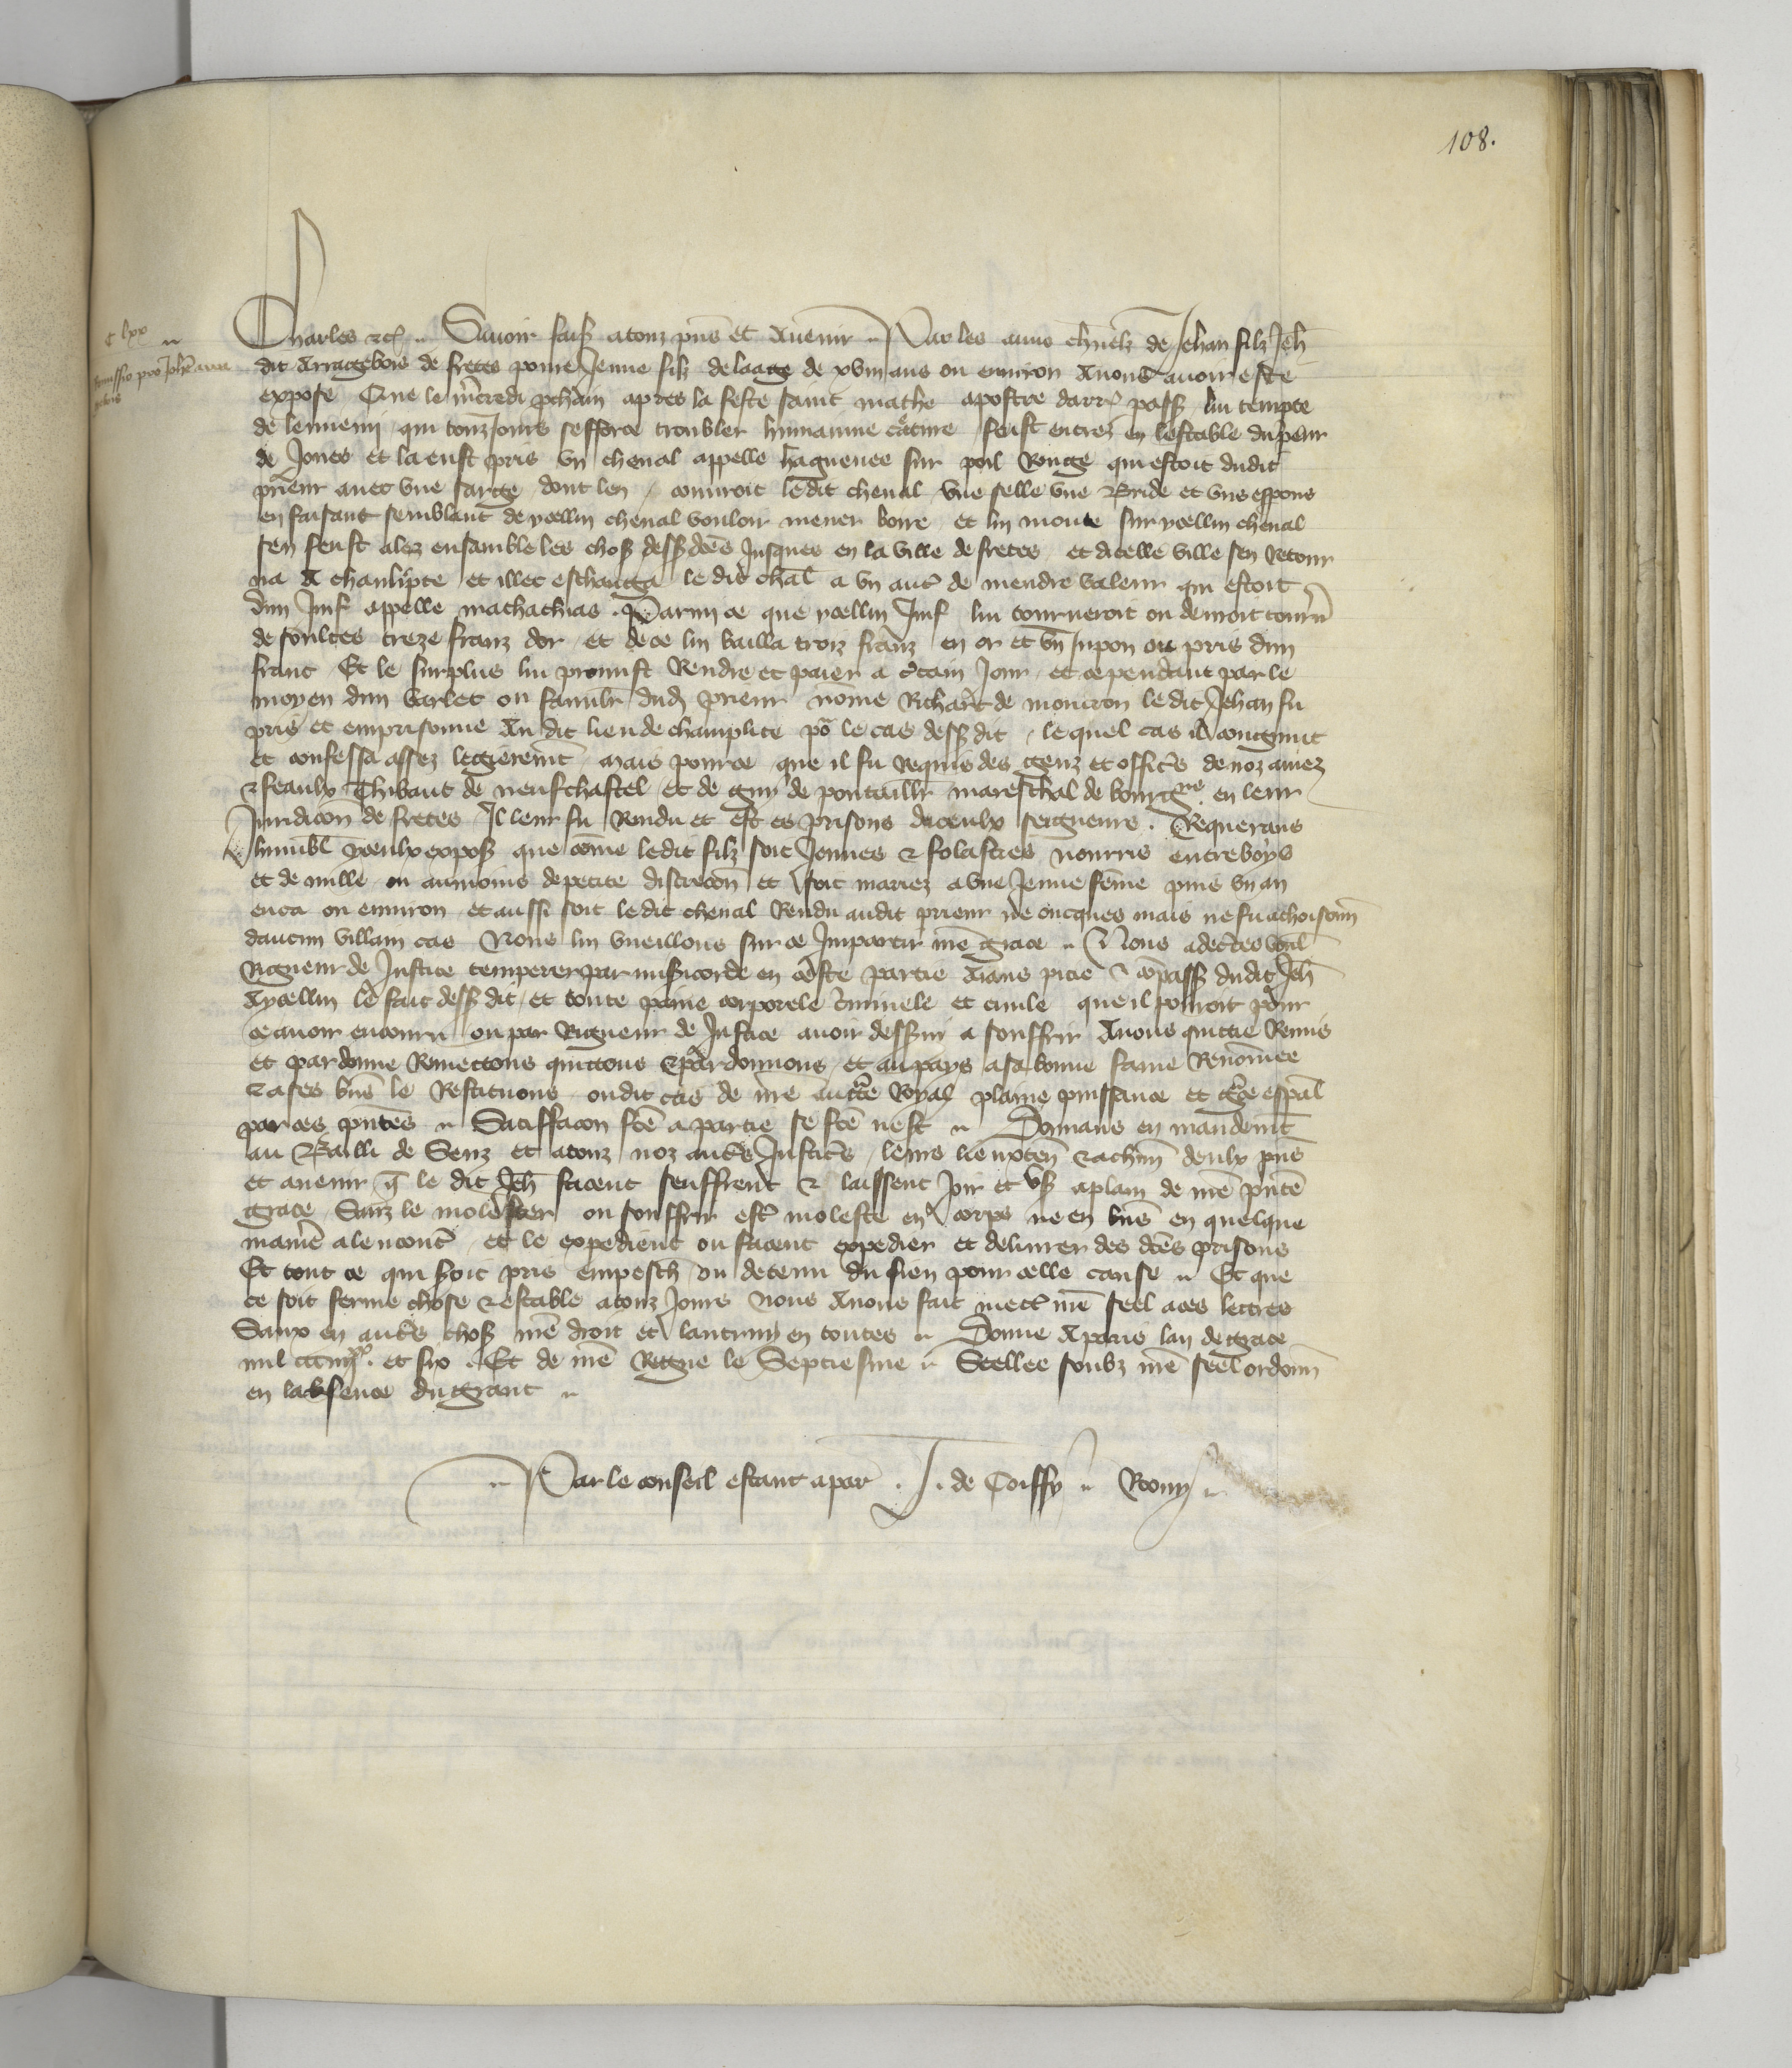 108.
c lxx
Remissio pro Johanne arra
gebois
Charles etc. Savoir faiss a touz pns et Avenir Par les amis chnelz de Jehan filz Jeh
dit Arragebois de fretes pome Jenne filz de laage de xviii ans ou environ Anous avoir este
expose Que le mcredi pchain apres la feste saint mathe apostre darr pass lui tempte
de lennemi qui touz Jours sefforce troubler humainne cature feust entrez en lestable du peur
de Jones et la eust pris un cheval appelle haguenee sur poil Rouge qui estoit dudit
prieur avec une sarge dont len couvroit ledit cheval une selle une Bride et uns espons
en faisant semblant de ycellui cheval vouloir mener boire et lui monte sur ycellui cheval
sen feust alez ensamble les chos dessdces Jusques en la ville de fretes et dicelle ville sen Retour
na A chanlipte et illec eschanga le dit chal a un autre de mendre valeur qui estoit
dun Juif appelle mathathias Parmi ce que ycellui Juif lui tourneroit ou devroit tourn
de soultes treze franz dor et de ce lui bailla troiz franz en or et un Jupon ou pris dun
franc Et le surplus lui promist Rendre et paier a ctain Jour et cependant par le
moyen dun varlet ou familr dud prieur nome Richart de moncron le dit Jehan fu
pris et emprisonne Au dit lieu de champlite po le cas dessdit le quel cas il congnut
et confessa assez legierement mais pource que il fu requis des genz et officrs de noz amez
et feaulx Thibaut de neufchastel et de guy de pontaillr mareschal de bourgne en leur
Juridicon de fretes Il leur fu Rendu et est es prisons diceulx seigneurs . Requerans
humbl yceulx expos que come ledit filz soit Jennes et folasties nourris entre boys
et de nulle ou aumoins de petite discrecon et soit mariez a une Jenne feme puis un an
enca ou environ et aussi soit ledit cheval Rendu audit prieur ne oncques mais ne fu achoisonn
daucun villain cas Nous lui vueillons sur ce Impartir nre grace Nous adecertes voul
Rigueur de Justice temperer par misicorde en ceste partie Aians pitie et copass dudit Jeh
Aycellui le fait dessdit et toute paine corporele criminele et civile que il pourroit pour
ce avoir encouru ou par Rigueur de Justice avoir dessvi a souffrir Avons quittie Remis
et pardonne Remectons quittons et pardonnons et au pays a sa bonne fame Renommee
et a ses biens le Restituons oudit cas de nre auctte Royal plaine puissance et grace espal
par ces pntes Satiffacon fce a partie se fce nest Donnans en mandemt
au Bailli de Senz et a touz noz autrs Justicrs leurs lieuxten et achun deulx pns
et avenir q le dit Jeh facent seuffrent et laissent Joir et us aplain de nre pnte
grace Sanz le molester ou souffrir estr moleste en corps ne en biens en quelque
maniere alencontr et le expedient ou facent expedier et delivrer des dces prisons
Et tout ce qui soit pris empesch ou detenu du sien pour celle cause Et que
ce soit ferme chose et estable a touz Jours Nous Avons fait mectr nre seel a ces lettres
Sauf en autrs chos nre droit et lautruy en toutes Donne A paris lan de grace
mil ccciiiixx. et six . Et de nre Regne le Septiesme Seellee soubz nre seel ordonn
en labsence du grant
Par le conseil estant a par . J. de Coiffy Rony